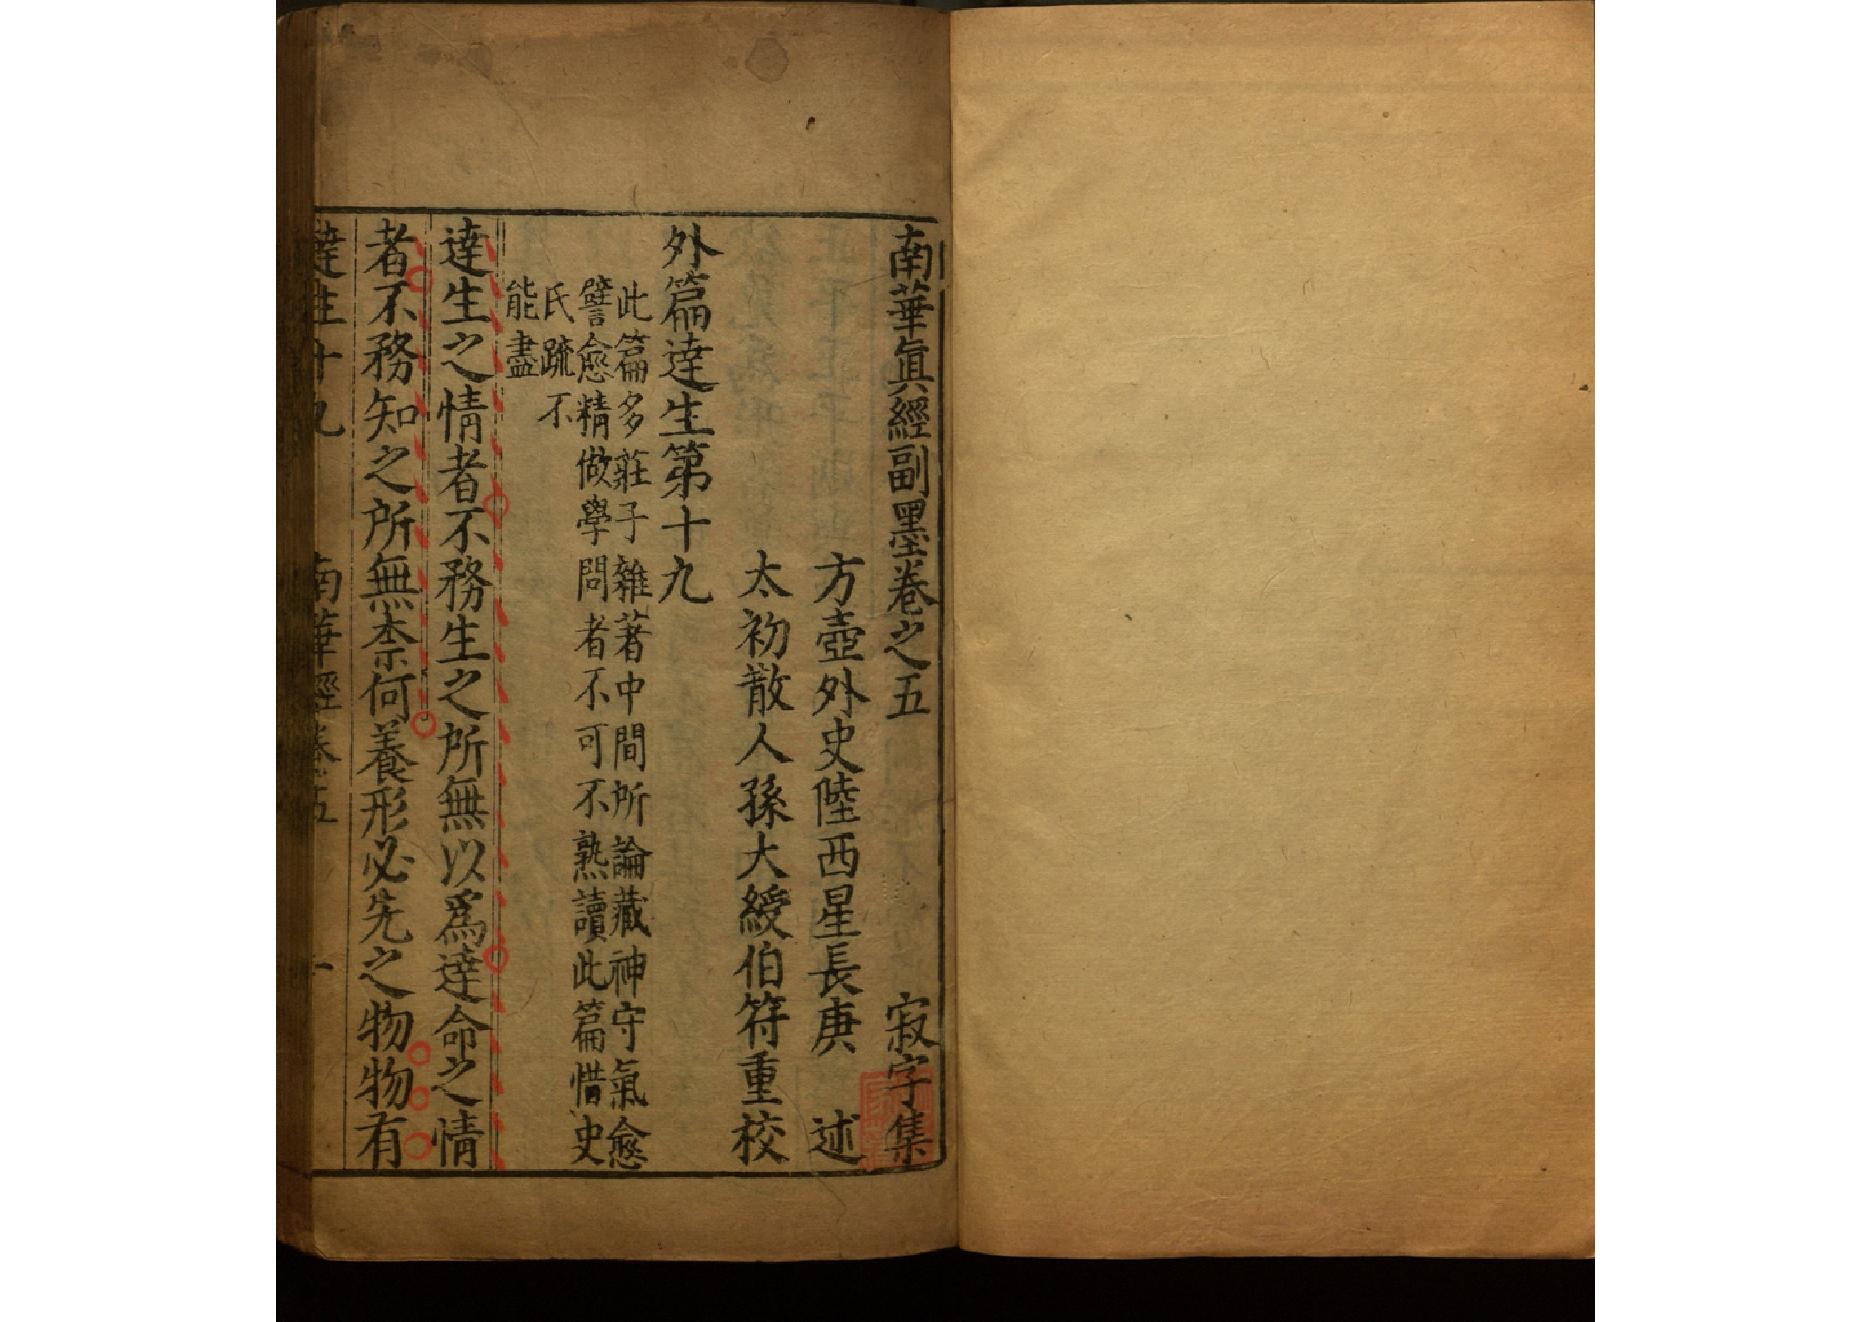 南華眞經副墨卷之五 寂字集
方壺外史陸西星長庚 述
太初散人孫大綬伯符重校
外篇達生第十九
此篇多莊子雜著中間所論藏神守氣愈
譬愈精做學問者不可不熟讀此篇惜史
氏䟽不
能盡
達生之情者不務生之所無以爲達命之情
者不務知之所無柰何養形必先之物物有
達生十九 南華經卷五 一